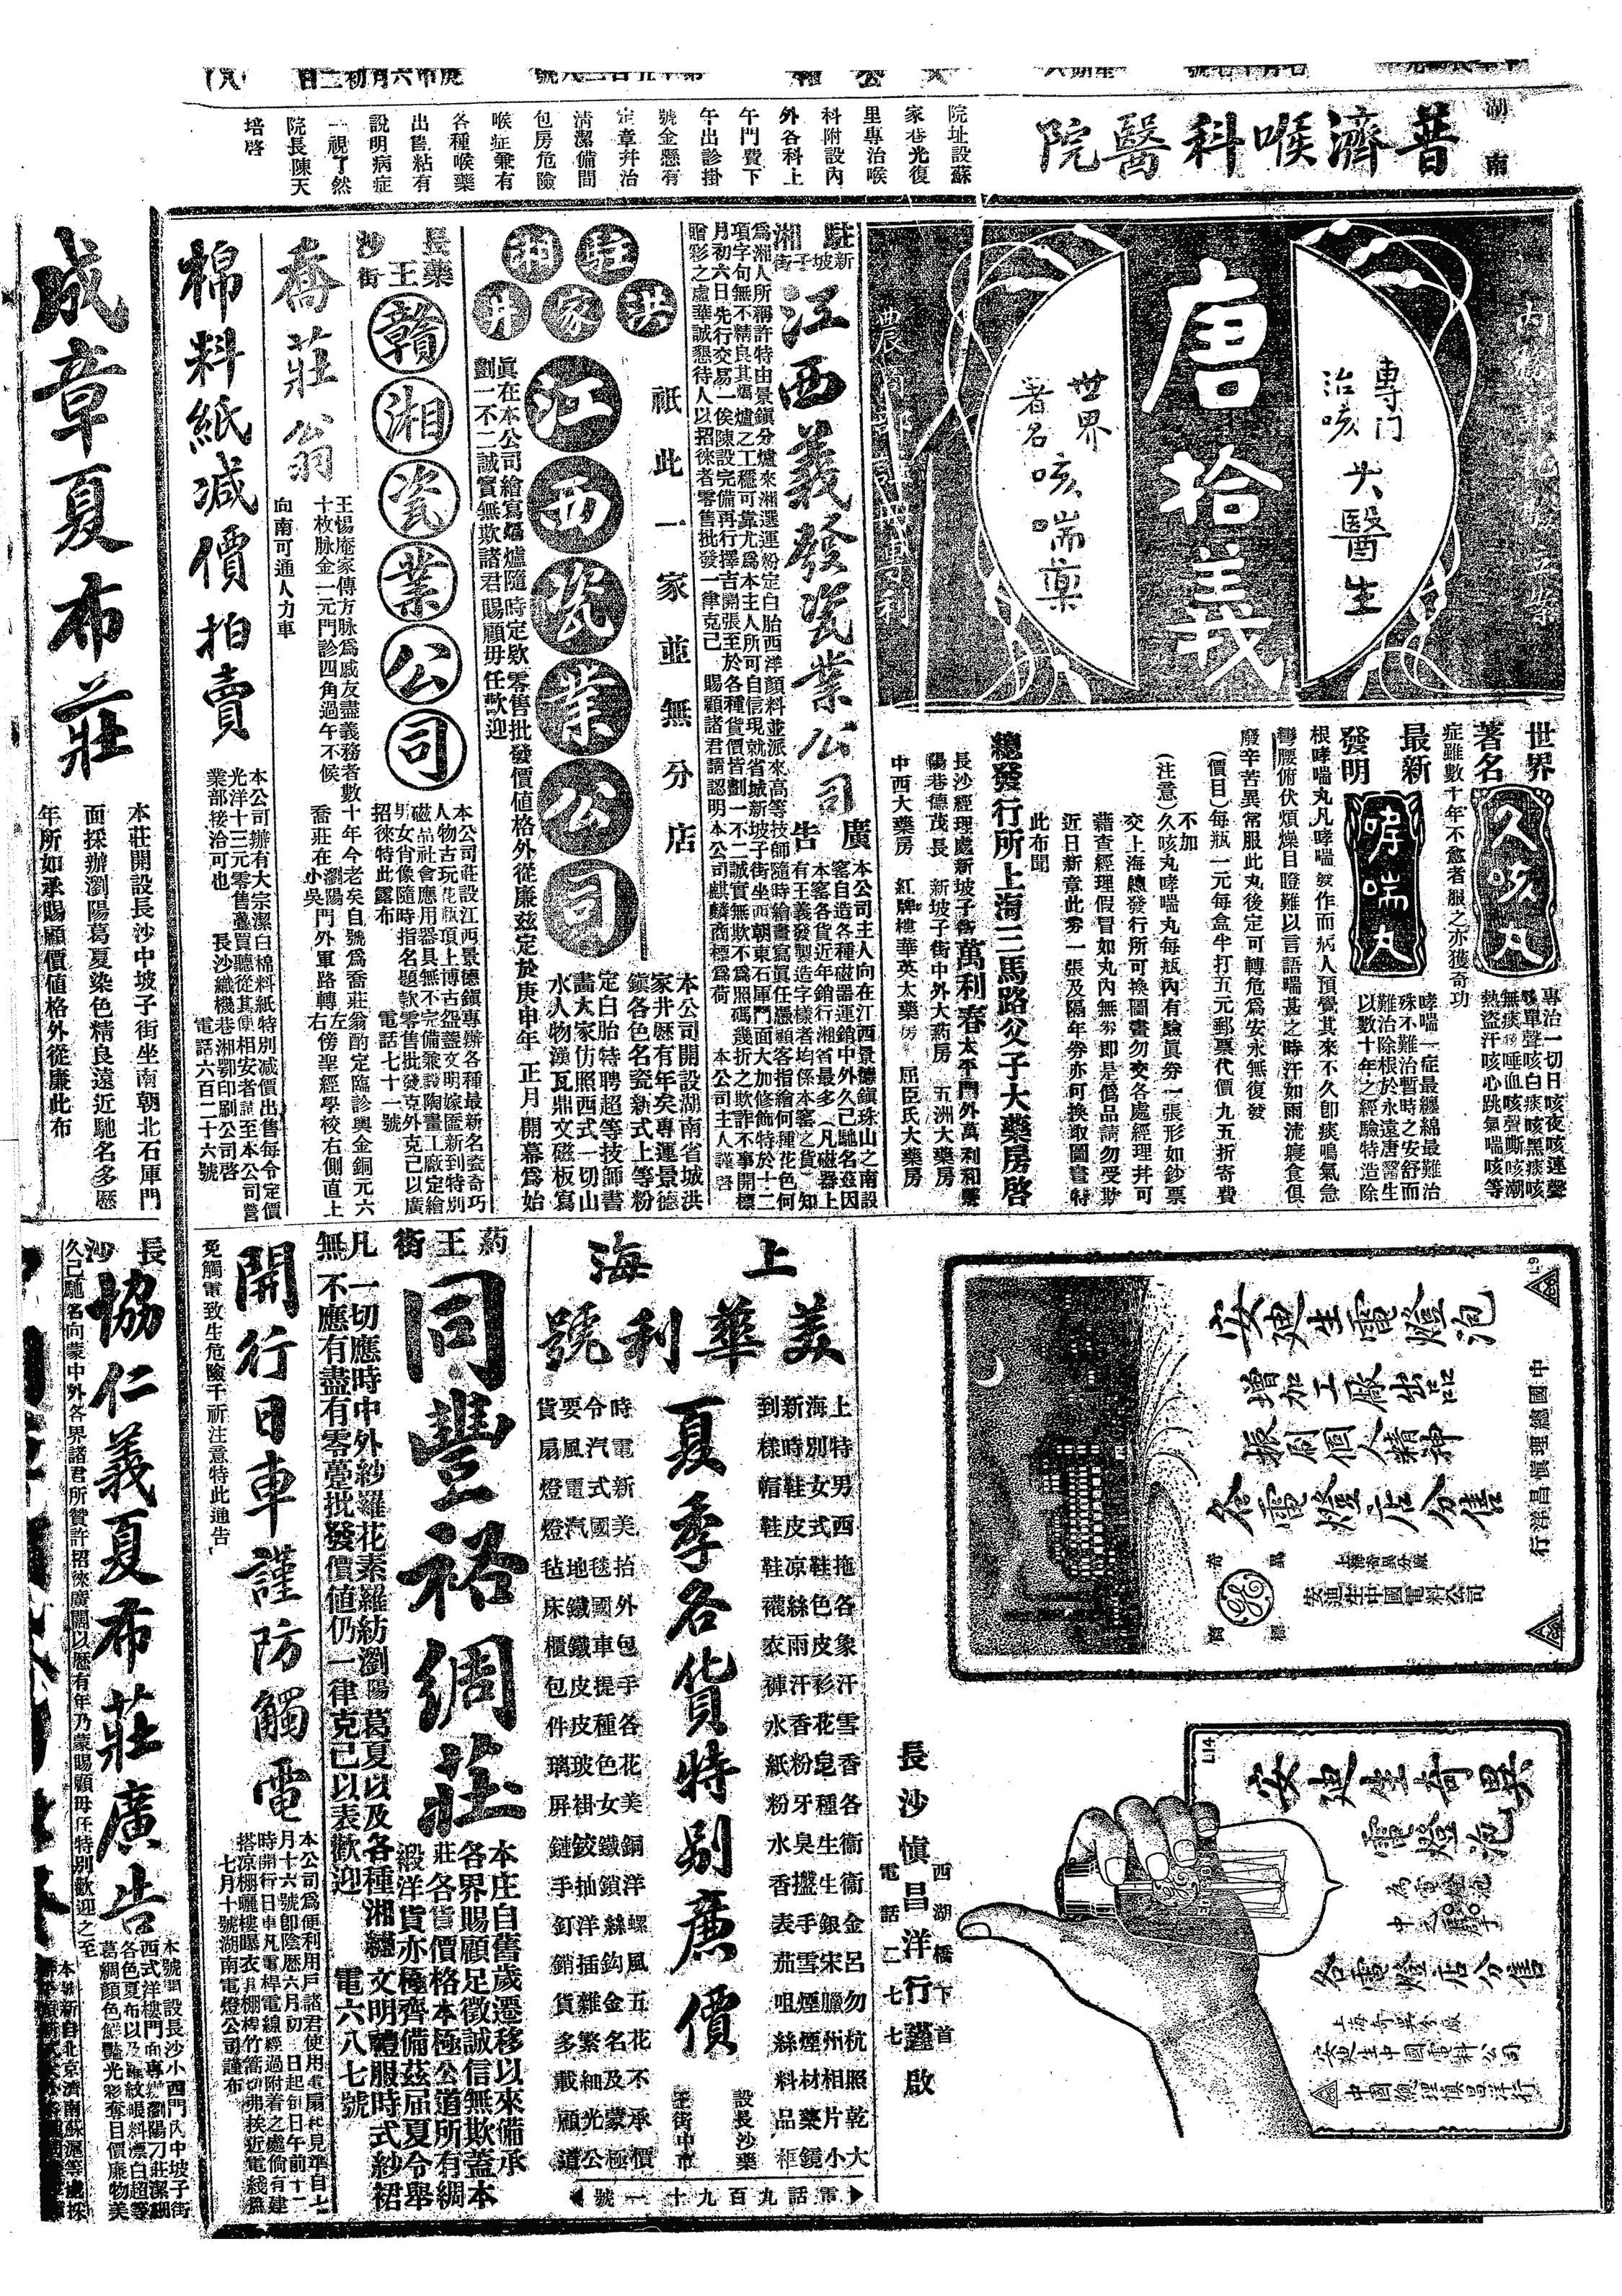 庚申六月初二日
湖南
普濟喉科醫院
院址設蘇
家巷光復
里專治喉
科附設內
外各科上
午門費下
午出診掛
號金懸有
定章幷治
清潔備間
包房危險
喉症兼有
各種喉藥
出售粘有
說明病症
一視了然
院長陳天
培啓
唐拾義
專門
治咳
大醫生
世界
著名
咳喘藥
世界
著名
久咳丸
專治一切日咳夜咳連聲
無痰咳唾血咳聲嘶咳潮
熱盜汗咳心跳氣喘咳等
症雖數十年不愈者服之亦獲奇功
最新
發明
哮喘丸
哮喘一症最纏綿最難治
殊不難治暫時之安舒而
難治除根於永遠唐醫生
以數十年之經驗特造除
根哮喘丸凡哮喘發作而病人預覺其來不久卽痰鳴氣急
彎腰俯伏煩燥目瞪難以言語喘甚之時汗如雨流寢食俱
廢辛苦異常服此丸後定可轉危爲安永無復發
(價目)每瓶一元每盒半打五元郵票代價九五折寄費
不加
(注意)久咳丸哮喘丸每瓶內有驗眞券一張形如鈔票
交上海總發行所可換圖畫勿交各處經理幷可
藉查經理假冒如丸內無券卽是僞品請勿受欺
近日新章此券一張及隔年券亦可換取圖畫特
此布聞
總發行所上海三馬路父子大藥房啓
長沙經理處新坡子街萬利春太平門外萬利和號
陽巷德茂長 新坡子街中外大葯房 五洲大藥房
中西大藥房 紅牌樓華英大藥房 屈臣氏大藥房
駐湘
新坡子街
江西義發瓷業公司
廣告
本公司主人向在江西景德鎭珠山之南設
窰自造各種磁器運銷中外久已馳名茲因
本窰各貨近年銷行湘省最多(凡磁器上
有王義發製造字樣者均係本窰之貨)知
爲湘人所稱許特由景鎭分爐來湘選運粉定白胎西洋顏料並派來高等技師隨時繪畫寫眞任憑顧客指繪何種花色何
項字句無不精良其爐之工穩可靠尤爲本主人所可自信現就省城新坡子街坐西朝東石庫門面大加修飾特於十二
月初六日先行交易一俟陳設完備再行擇吉開張至於各種貨價皆劃一不二誠實無欺不爲照碼幾折之欺詐不事開標
贈彩之虛華誠懇待人以招徠者零售批發一律克己 賜顧諸君請認明本公司麒麟商標爲荷 本公司主人謹啓
駐湘
洪家井
江西瓷業公司
祇此一家並無分店
本公司開設湖南省城洪
家井歷有年矣專運景德
鎭各色名瓷新式上等粉
定白胎特聘超等技師書
畫大家仿照西式一切山
水人物漢瓦鼎文磁板寫
眞在本公司繪寫爐隨時定欵零售批發價値格外從廉茲定於庚申年正月開幕爲始
劃一不二誠實無欺諸君賜顧毋任歡迎
長沙
藥王街
贛湘瓷業公司
本公司莊設江西景德鎭專辦各種最新名瓷奇巧
人物古玩花瓶項上博古盌盞文明嫁匳新到特別
磁品社會應用器具無不完備兼設陶畫工廠定繪
男女肖像隨時指名題欵零售批發克外克己以廣
招徠特此露布 電話七十一號
喬莊翁
王惕庵家傳方脉爲戚友盡義務者數十年今老矣自號爲喬莊翁酌定臨診輿金銅元六
十枚脉金一元門診四角過午不候 喬莊在小吳門外軍路轉左傍聖經學校右側直上
向南可通人力車
棉料紙減價拍賣
本公司辦有大宗潔白棉料紙特別減價出售每令定價
光洋十三元零售躉買聽從其便相安者請至本公司營
業部接洽可也 長沙織機巷湘鄂印刷公司啓
電話六百二十六號
成章夏布莊
本莊開設長沙中坡子街坐南朝北石庫門
面採辦瀏陽葛夏染色精良遠近馳名多歷
年所如承賜顧價値格外從廉此布
安迪生電燈泡
增加工廠出品
振刷個人精神
各電燈店分售
安迪生中國電料公司
中國總理愼昌洋行
安迪生奇異
電燈泡
爲電燈泡
中之魁〇
各電燈店分售
安迪生中國電料公司
中國總理愼昌洋行
長沙愼昌洋行謹啟
西湖橋下首
電話二七七
上海
美華利號
夏季各貨特別廉價
上海新到
特別時樣
男女鞋帽
西式皮鞋
拖鞋凉鞋
各色絲襪
象皮雨衣
汗衫汗褲
雪花香水
香皂粉紙
各種牙粉
衞生臭水
衞生盤香
金銀手表
呂宋雪茄
勿臘煙咀
杭州煙絲
照相材料
乾片藥品
大小鏡框
時令要貨
電汽風扇
新式電燈
美國汽燈
抬毯地毡
外國鐵床
包車鐵櫃
手提皮包
各種皮件
花色玻璃
美女褂屏
銅鐵鉸鏈
洋鎖抽手
螺絲洋釘
風鈎插銷
五金雜貨
花名繁多
不及細載
承蒙光顧
價極公道
設長沙藥
王街中市
電話九百九十一號
葯王街
同豐裕綢莊
本庄自舊歲遷移以來備承
各界賜顧足徵誠信無欺蓋本
莊各貨價格本極公道所有綢
緞洋貨亦極齊備茲屆夏令舉
凡一切應時中外紗羅花素羅紡瀏陽葛夏以及各種湘繡文明體服時式紗裙
無不應有盡有零躉批發價値仍一律克己以表歡迎 電六八七號
開行日車謹防觸電
本公司爲便利用戶諸君使用電扇起見準自七
月十六號卽陰歷六月初一日起每日午前十一
時開行日車凡電桿電線經過附着之處倘有建
搭凉棚曬樓曝衣具棚桿竹篙切弗挨近電綫蓋
免觸電致生危險千祈注意特此通告
七月十號湖南電燈公司謹布
長沙
協仁義夏布莊廣告
本號開設長沙小西門內中坡子街
西式洋樓門面專辦瀏陽刀莊潔細
各色夏布以及羅紋眼料漂白超等
葛綢顏色鮮艷光彩奪目價廉物美
久已馳名向蒙中外各界諸君所贊許招徠廣闊以歷有年乃蒙賜顧毋任特別歡迎之至